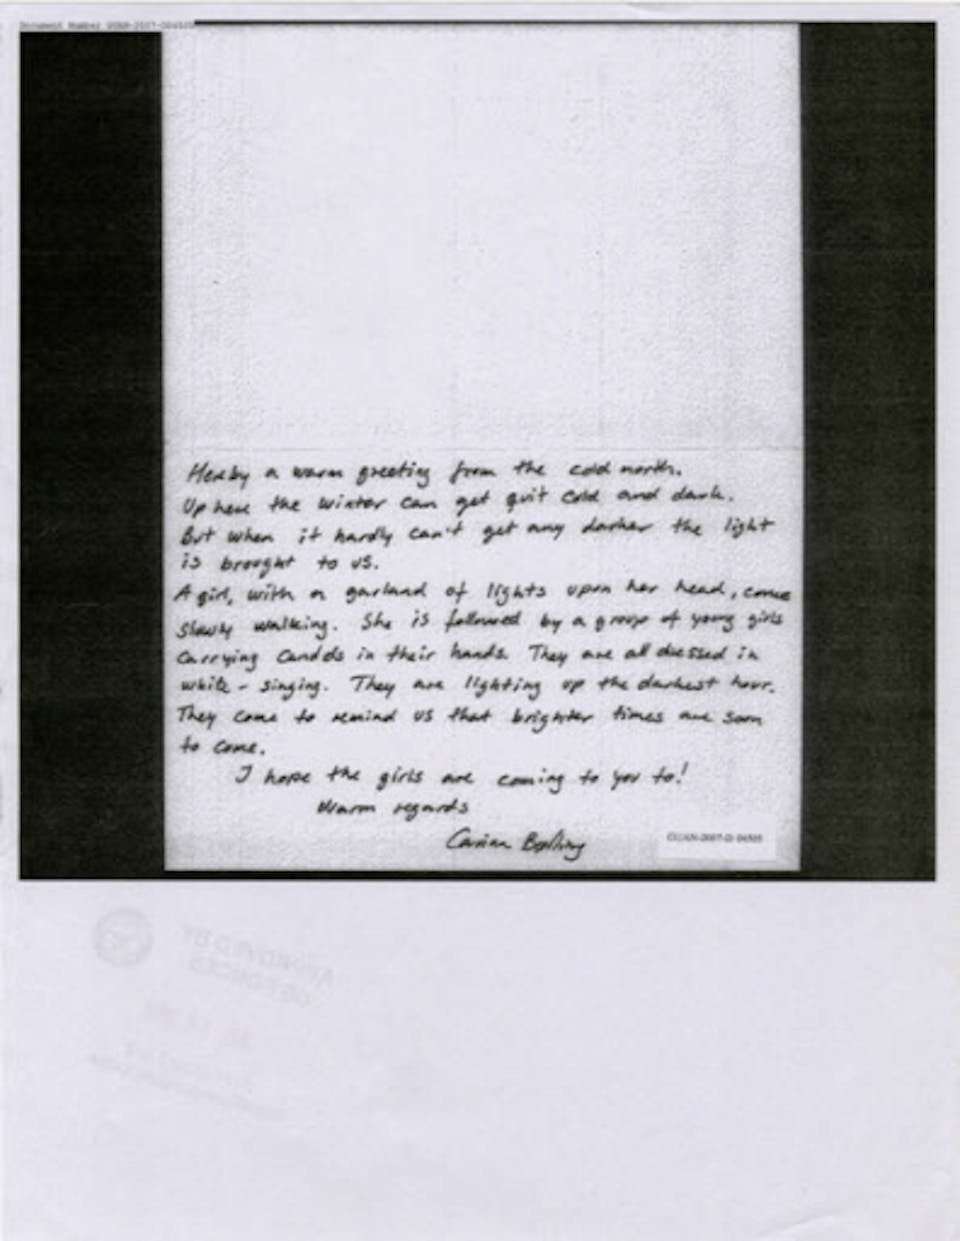 Document Number
Hereby a warm greeting from the cold north.
Up here the winter can get quit cold and dark.
But when it hardly can't get any darker the light
is brought to us.
A girl, with a garland of lights upon her head, come
slowly walking. She is followed by a group of young girls
carrying candels in their hands. They are all dressed in
white - singing. They are lighting up the darkest hour.
They come to remind us that brighter times are soon
to come.
I hope the girls are coming to you to!
Warm regards
APPROVED BY